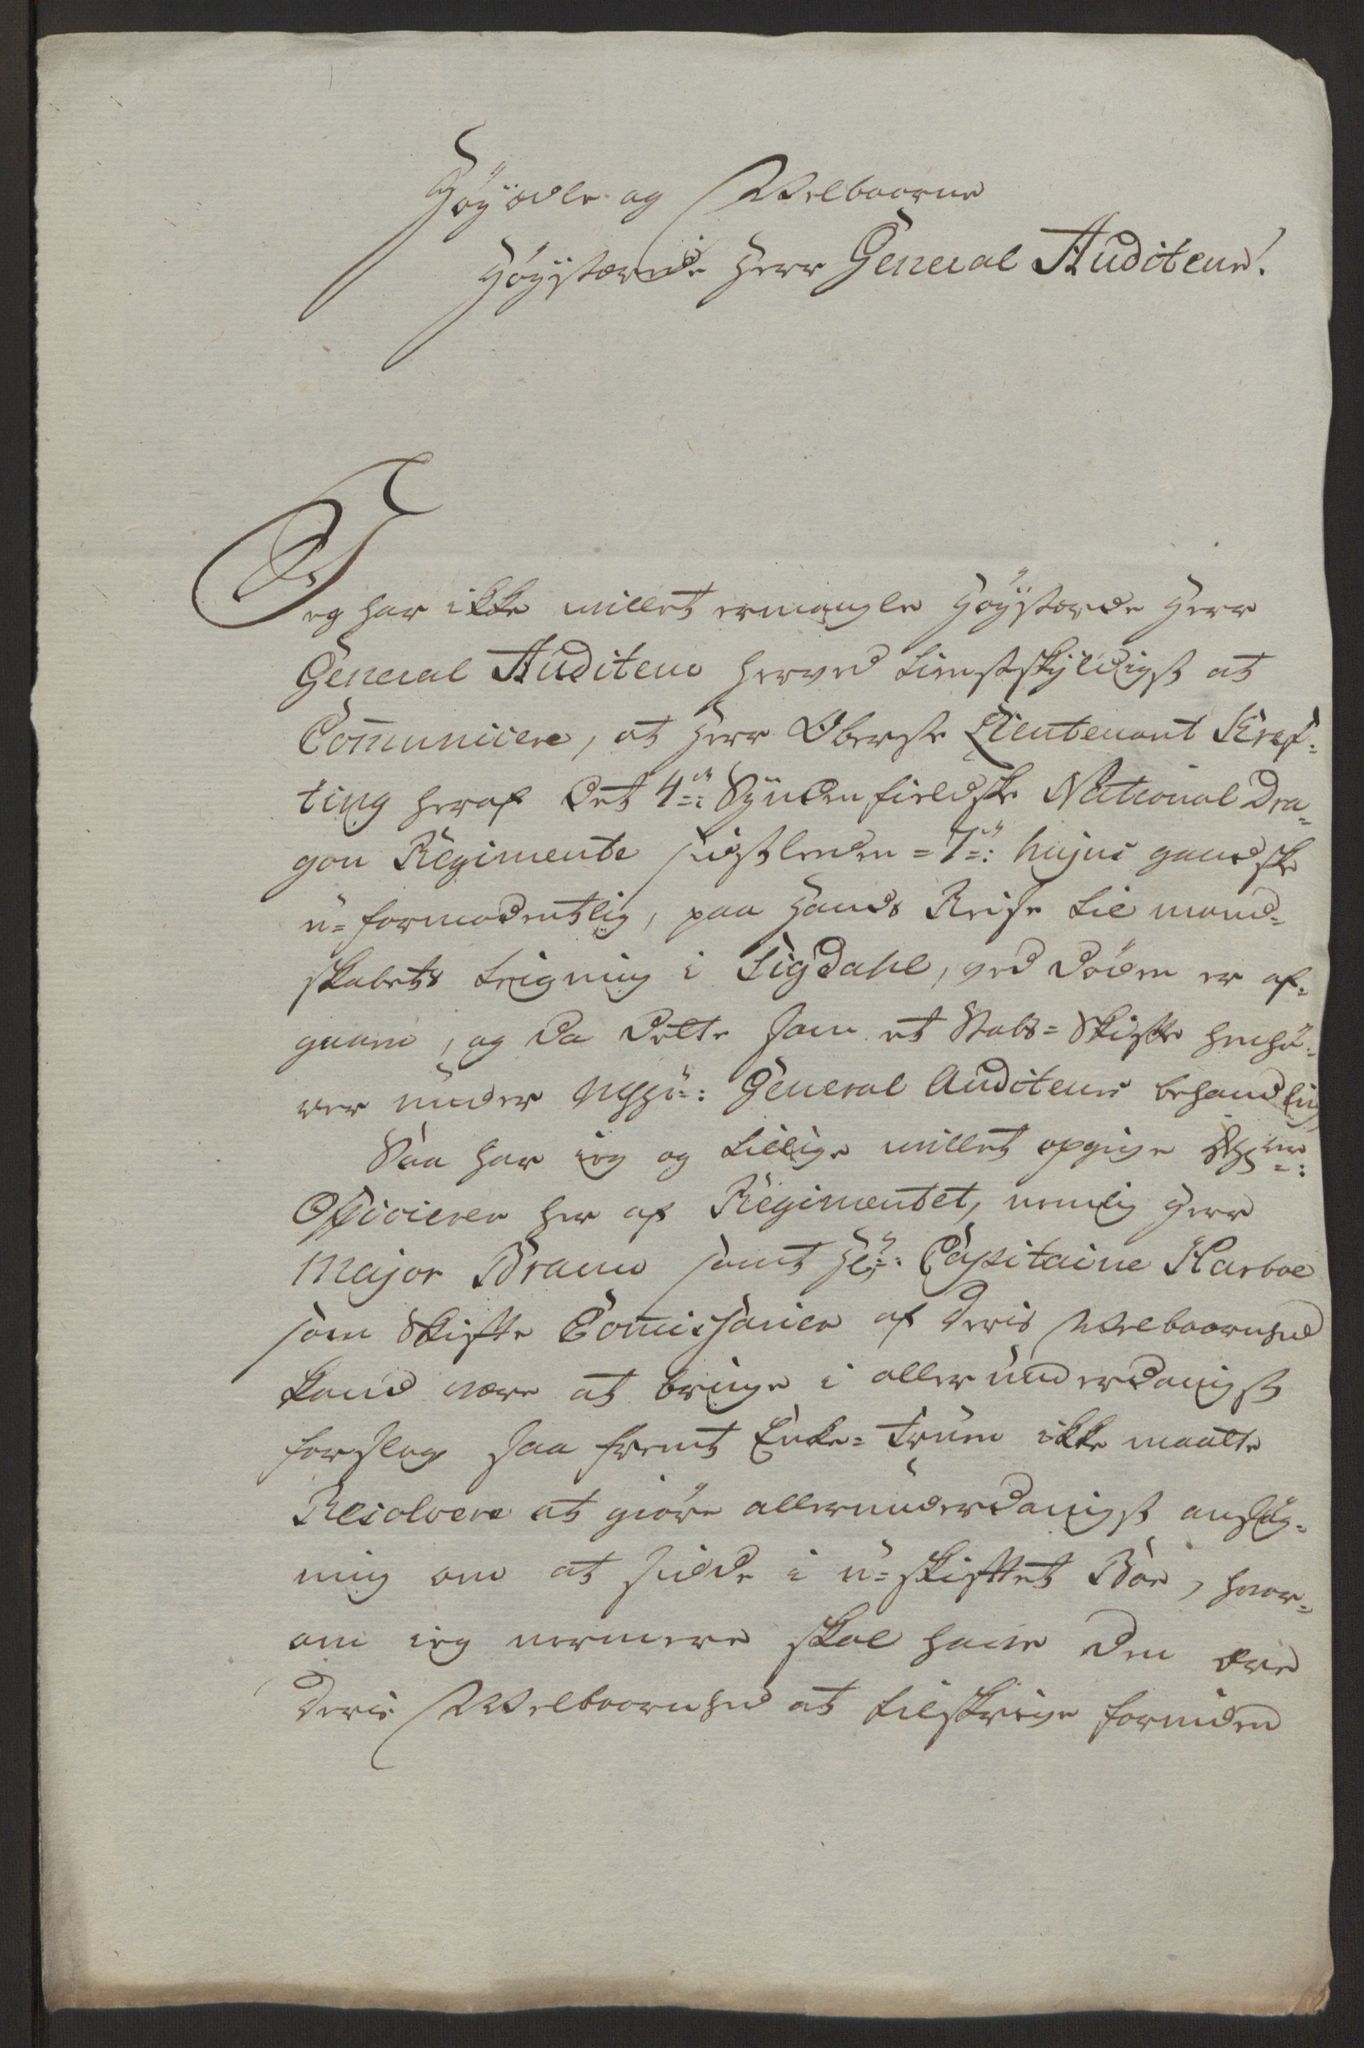 Høyædle og Welbaarne
Høystærede Herr General Auditeur!
Jeg har ikke villet ermangle Høystærede Herr
General Auditeur herved tienstskyldigst at
Com̅unicere, at Herr Oberste Lieutenant Kref-
ting heraf det 4de: Syndenfieldske National Dra-
gon Regimente sidstleden = 7de: hujus gandske
u-formodentlig, paa Hands Reise til mand-
skabets teigning i Sigdahl, ved døden er af-
gaaen, og da dette som et Stabs-Skifte henhö-
rer under General Auditeurs behandling
Saa har ieg og tillige villet opgive
Officierer her af Regimentet, nemlig Herr
Major Braun samt Hr: Capitaine Harboe
som Skifte Com̅issarier af deris Welbaarnhed
kand være at bringe i allerunderdanigst
forslag saa fremt Enke-Fruen ikke maatte
Resolvere at giöre allerunderdanigst ansög-
ning om at sidde i u-skiftet Boe, hvor-
om ieg nermere skal have den ære
deris Welbaarnhed at tilskrive foruden